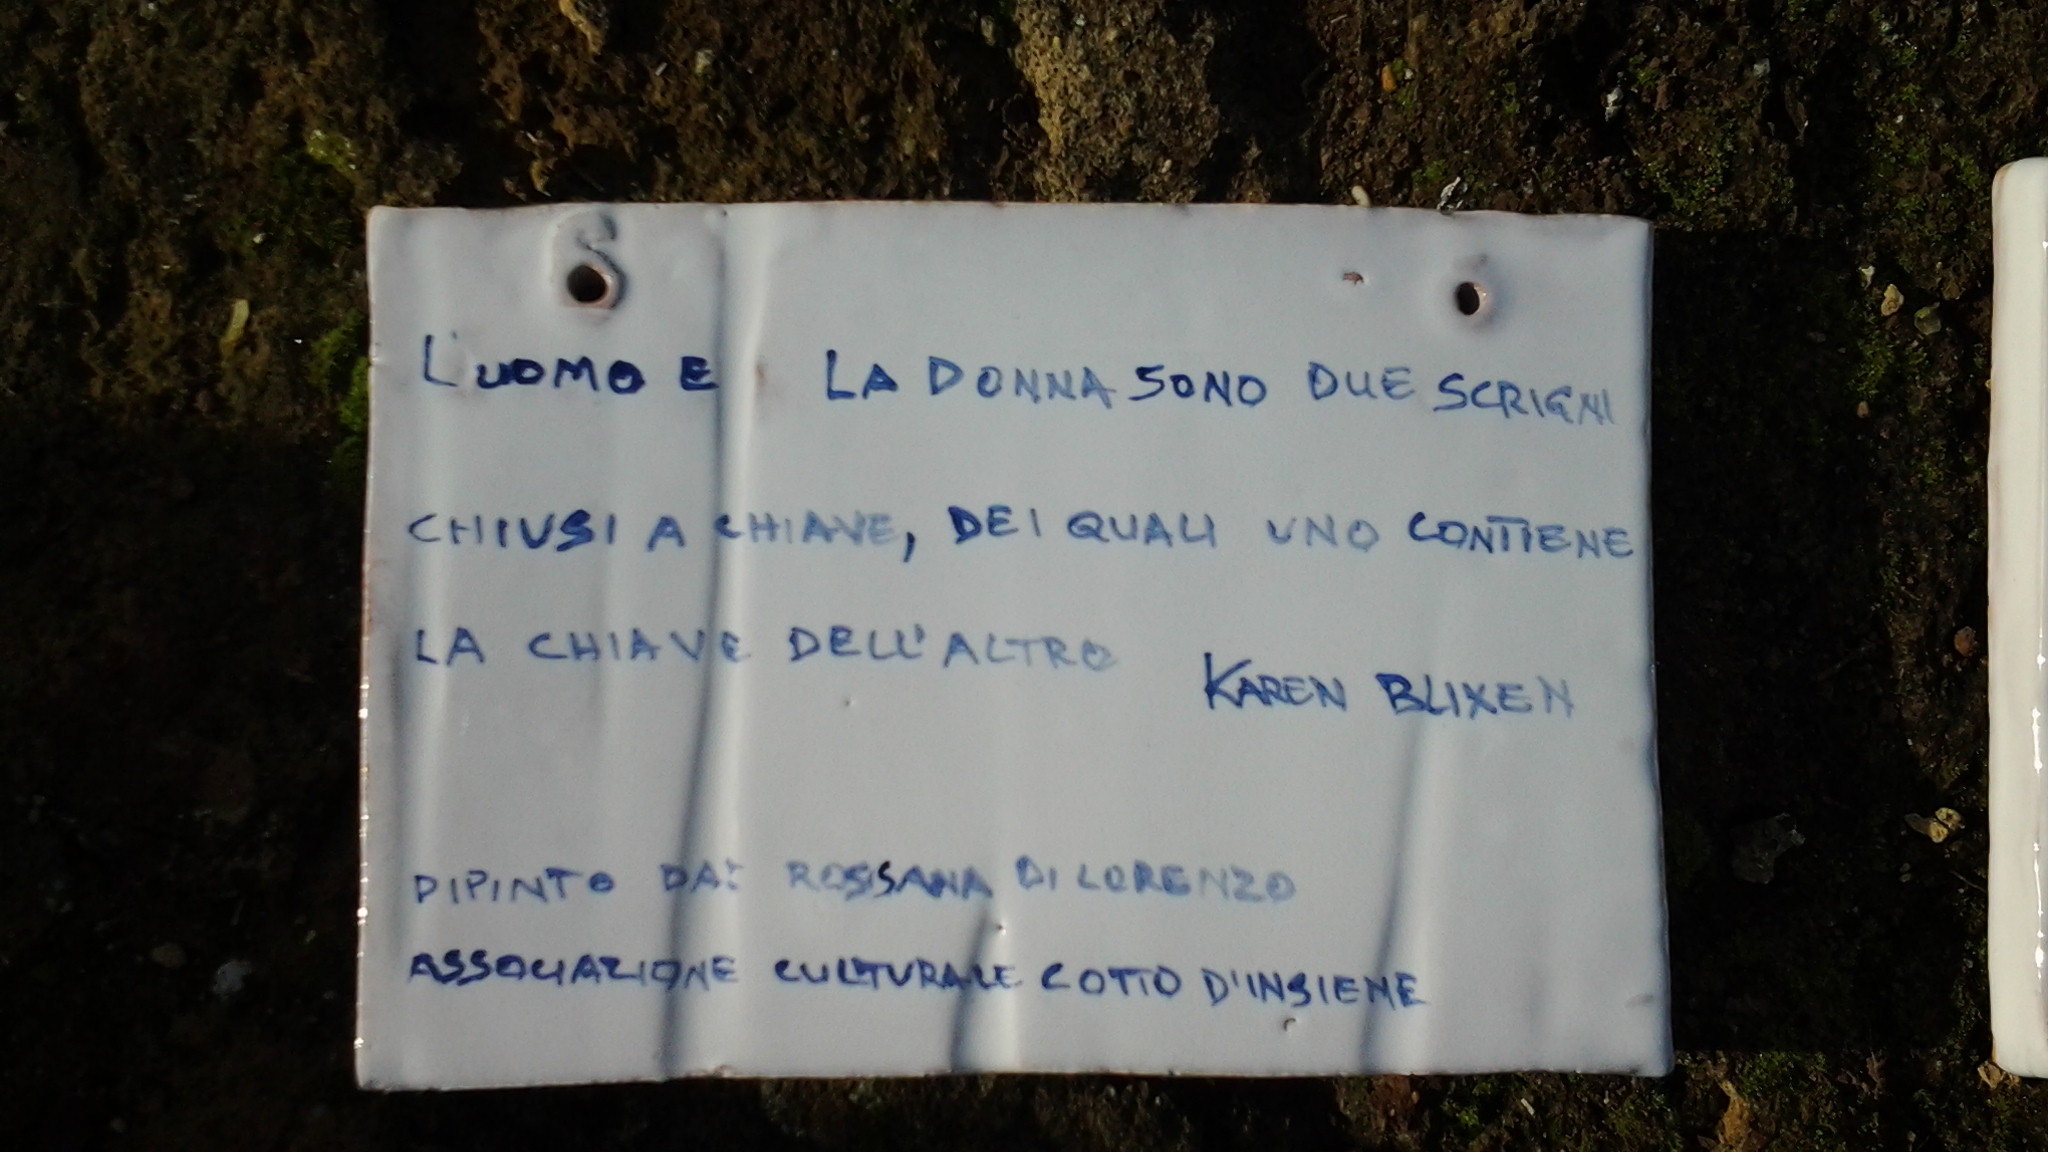 L'UOMO E LA DONNA SONO DUE SCRIGNI
CHIUSI A CHIAVE, DEI QUALI UNO CONTIENE
LA CHIAVE DELL'ALTRO
KAREN BLIXEN
DIPINTO DA: ROSSANA DI LORENZO
ASSOCIAZIONE CULTURALE COTTO D'INSIEME